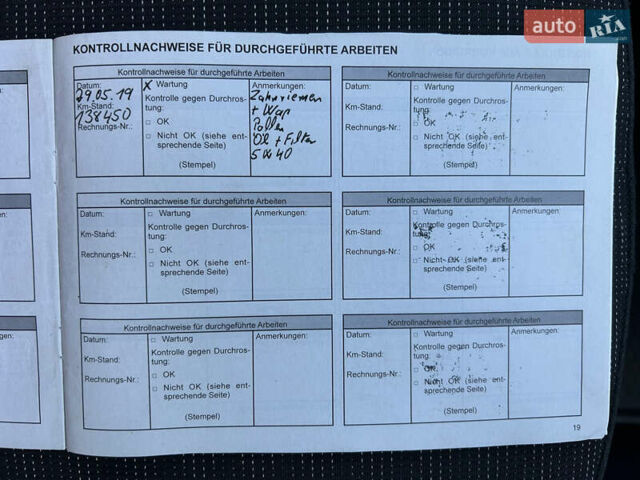 auto RIA
.com
KONTROLLNACHWEISE FÜR DURCHGEFÜHRTE ARBEITEN
Kontrollnachweise für durchgeführte Arbeiten
Datum:
29.05.19
Km-Stand:
138450
Rechnungs-Nr.:
X Wartung
Kontrolle gegen Durchros-
tung:
□ OK
□ Nicht OK (siehe ent-
sprechende Seite)
(Stempel)
Anmerkungen:
Zahnriemen
+ Wap
Pollen
Öl + Filter
5W40
Kontrollnachweise für durchgeführte Arbeiten
Datum:
Km-Stand:
Rechnungs-Nr.:
□ Wartung
Kontrolle gegen Durchros-
tung:
□ OK
□ Nicht OK (siehe ent-
sprechende Seite)
(Stempel)
Anmerkungen:
Kontrollnachweise für durchgeführte Arbeiten
Datum:
Km-Stand:
Rechnungs-Nr.:
□ Wartung
Kontrolle gegen Durchros-
tung:
□ OK
□ Nicht OK (siehe ent-
sprechende Seite)
(Stempel)
Anmerkungen:
Kontrollnachweise für durchgeführte Arbeiten
Datum:
Km-Stand:
Rechnungs-Nr.:
□ Wartung
Kontrolle gegen Durchros-
tung:
□ OK
□ Nicht OK (siehe ent-
sprechende Seite)
(Stempel)
Anmerkungen:
Kontrollnachweise für durchgeführte Arbeiten
Datum:
Km-Stand:
Rechnungs-Nr.:
□ Wartung
Kontrolle gegen Durchros-
tung:
□ OK
□ Nicht OK (siehe ent-
sprechende Seite)
(Stempel)
Anmerkungen:
Kontrollnachweise für durchgeführte Arbeiten
Datum:
Km-Stand:
Rechnungs-Nr.:
□ Wartung
Kontrolle gegen Durchros-
tung:
□ OK
□ Nicht OK (siehe ent-
sprechende Seite)
(Stempel)
Anmerkungen:
19